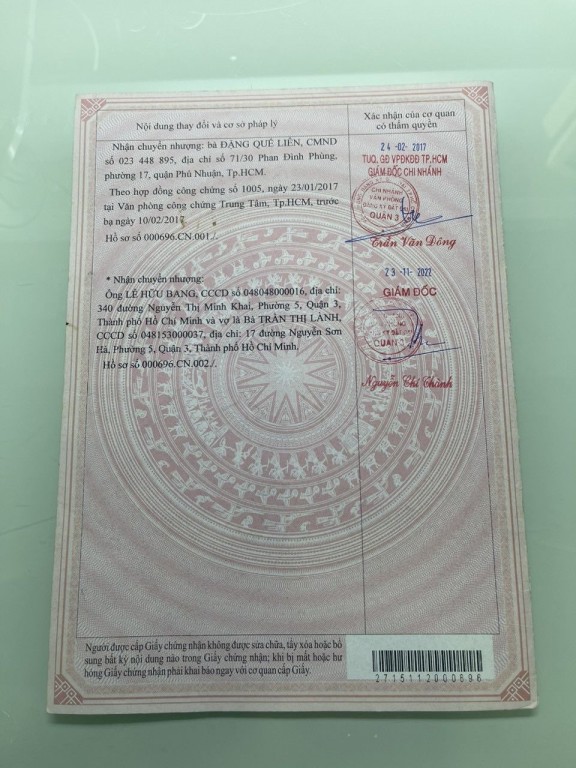 Nội dung thay đổi và cơ sở pháp lý
Xác nhận của cơ quan
có thẩm quyền
Nhận chuyển nhượng: bà ĐẶNG QUẾ LIÊN, CMND
số 023 448 895, địa chỉ số 71/30 Phan Đình Phùng,
phường 17, quận Phú Nhuận, Tp.HCM.
Theo hợp đồng công chứng số 1005, ngày 23/01/2017
tại Văn phòng công chứng Trung Tâm, Tp.HCM, trước
bạ ngày 10/02/2017.
Hồ sơ số 000696.CN.001./.
24 -02- 2017
TUQ. GĐ VPĐKĐĐ TP.HCM
GIÁM ĐỐC CHI NHÁNH
CHI NHÁNH
VĂN PHÒNG
ĐĂNG KÝ ĐẤT ĐAI
QUẬN 3
Trần Văn Đông
* Nhận chuyển nhượng:
Ông LÊ HỮU BANG, CCCD số 048048000016, địa chỉ:
340 đường Nguyễn Thị Minh Khai, Phường 5, Quận 3,
Thành phố Hồ Chí Minh và vợ là Bà TRẦN THỊ LÀNH,
CCCD số 048153000037, địa chỉ: 17 đường Nguyễn Sơn
Hà, Phường 5, Quận 3, Thành phố Hồ Chí Minh.
Hồ sơ số 000696.CN.002./.
23 -11- 2022
GIÁM ĐỐC
QUẬN 3
Nguyễn Chí Thành
Người được cấp Giấy chứng nhận không được sửa chữa, tẩy xóa hoặc bổ
sung bất kỳ nội dung nào trong Giấy chứng nhận; khi bị mất hoặc hư
hỏng Giấy chứng nhận phải khai báo ngay với cơ quan cấp Giấy.
2715112000696